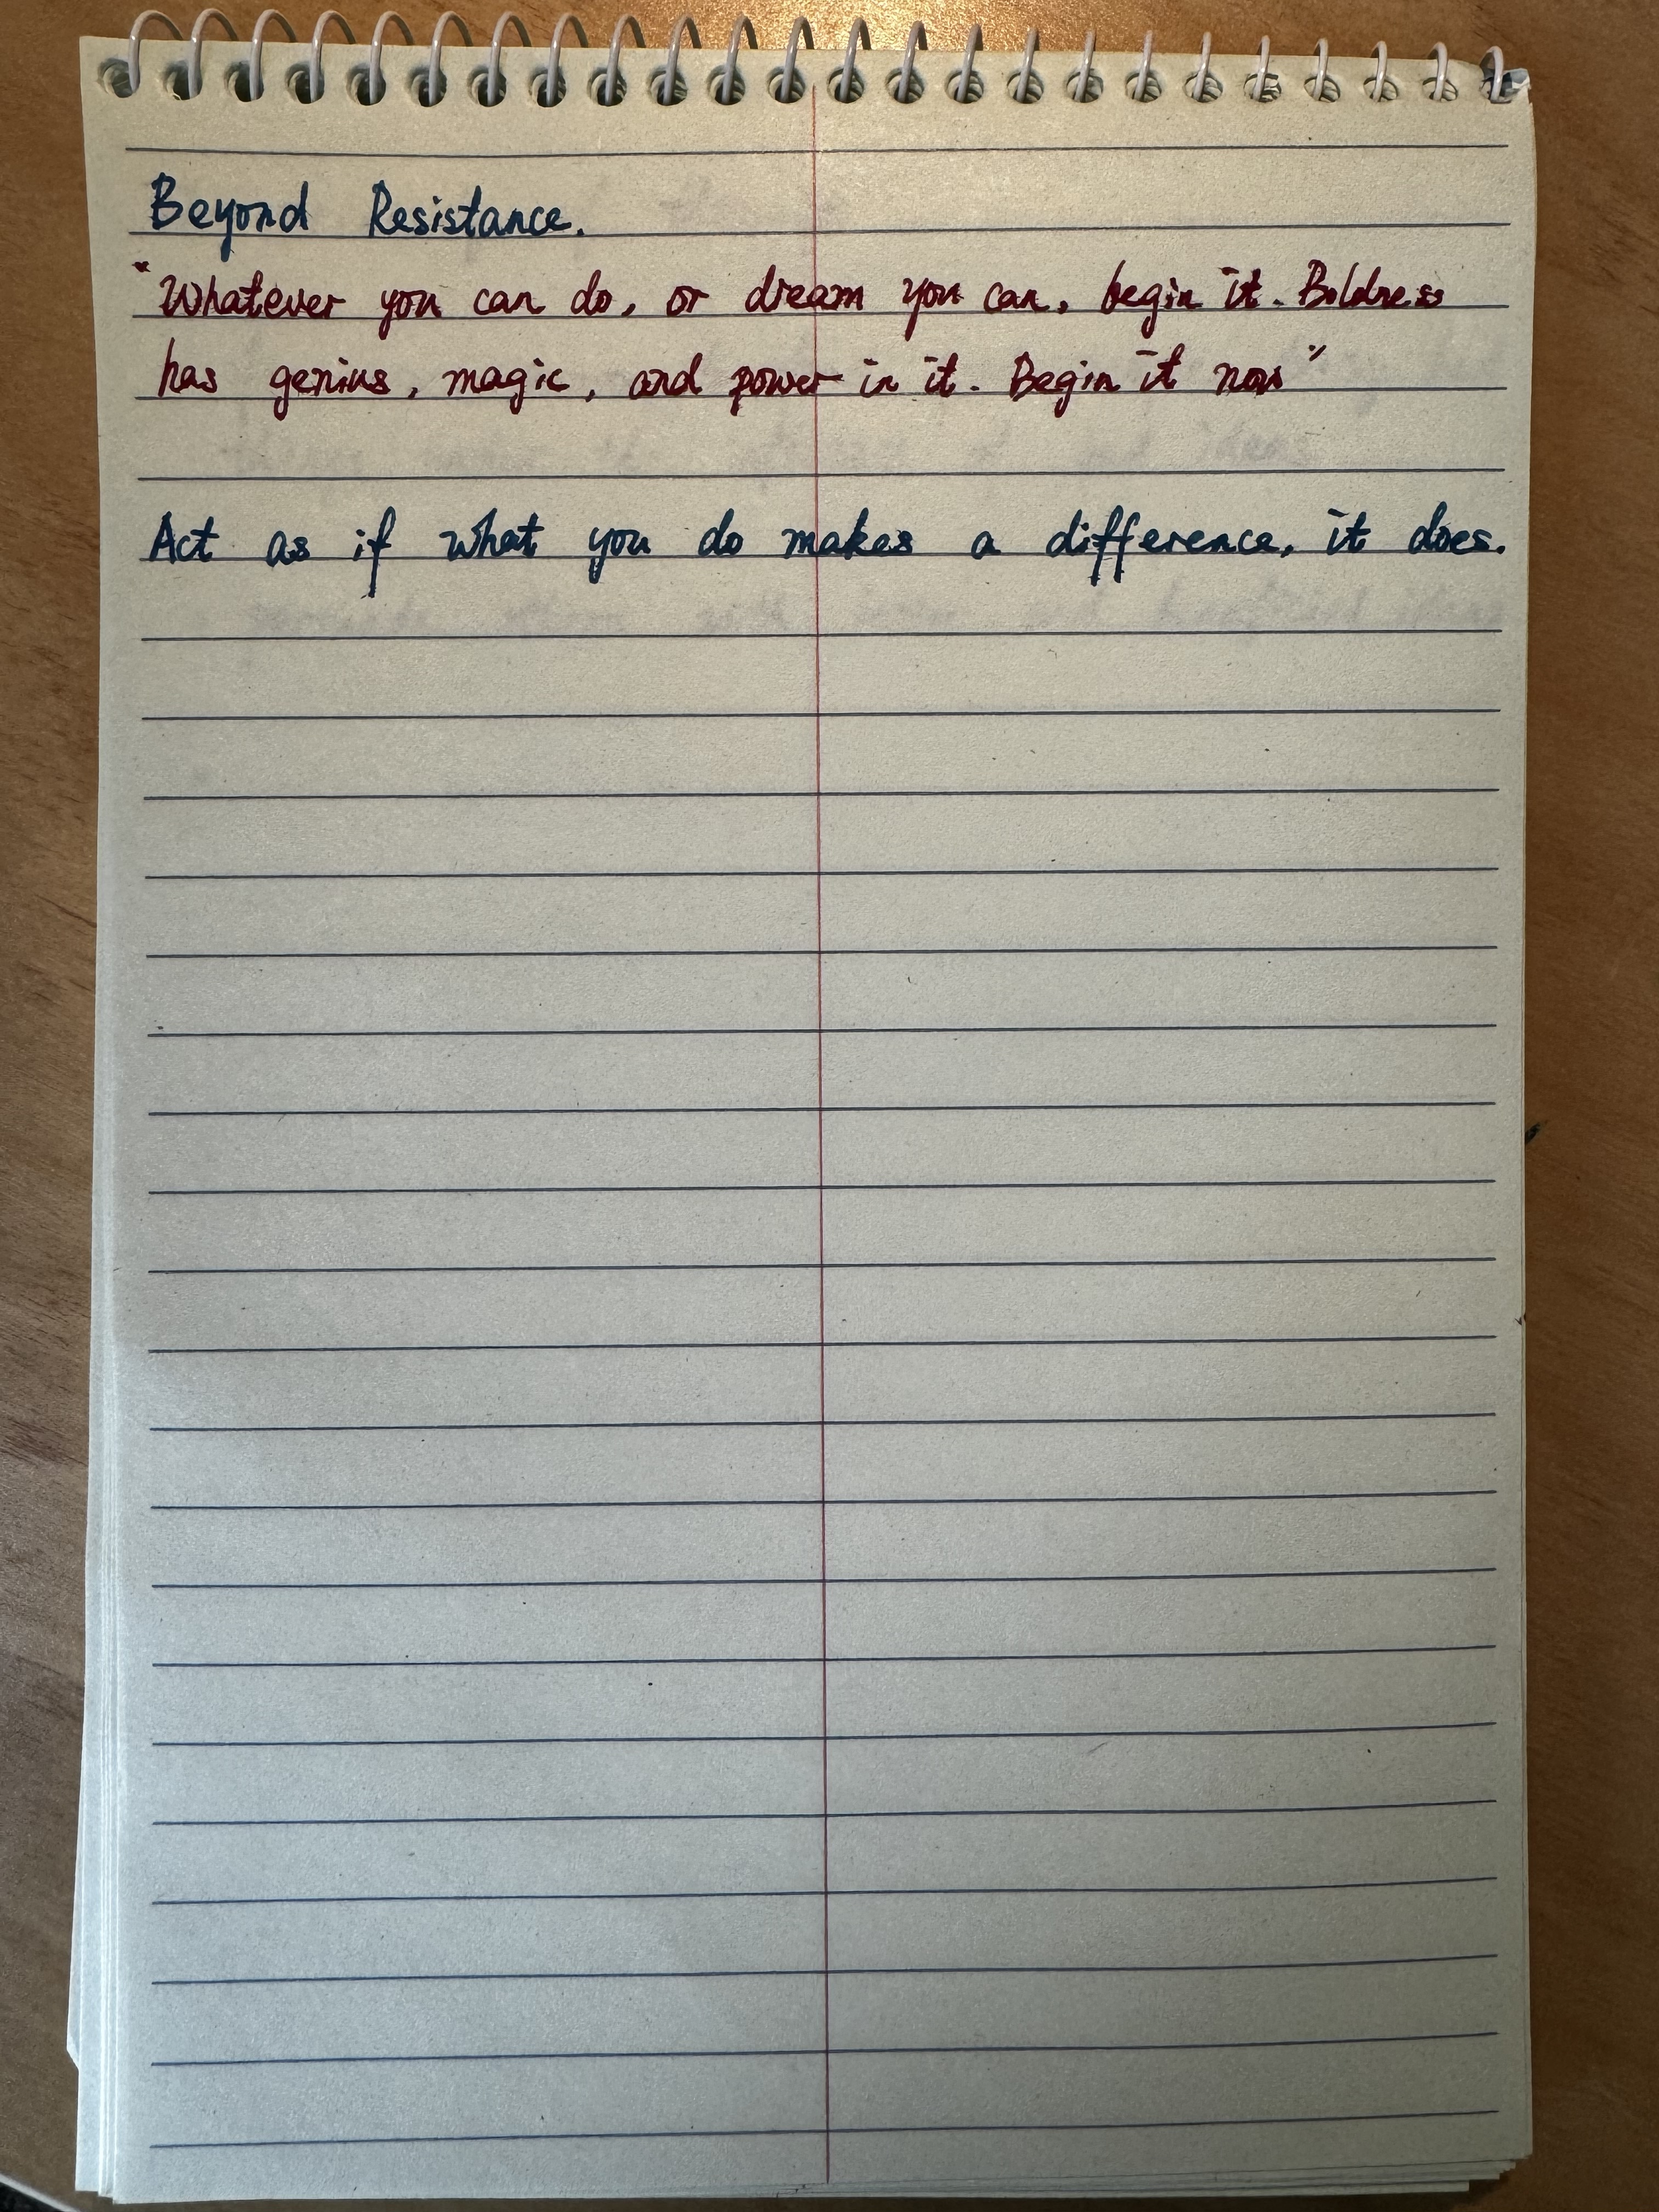 Beyond Resistance.
"Whatever you can do, or dream you can, begin it. Boldness
has genius, magic, and power in it. Begin it now"
Act as if what you do makes a difference, it does.